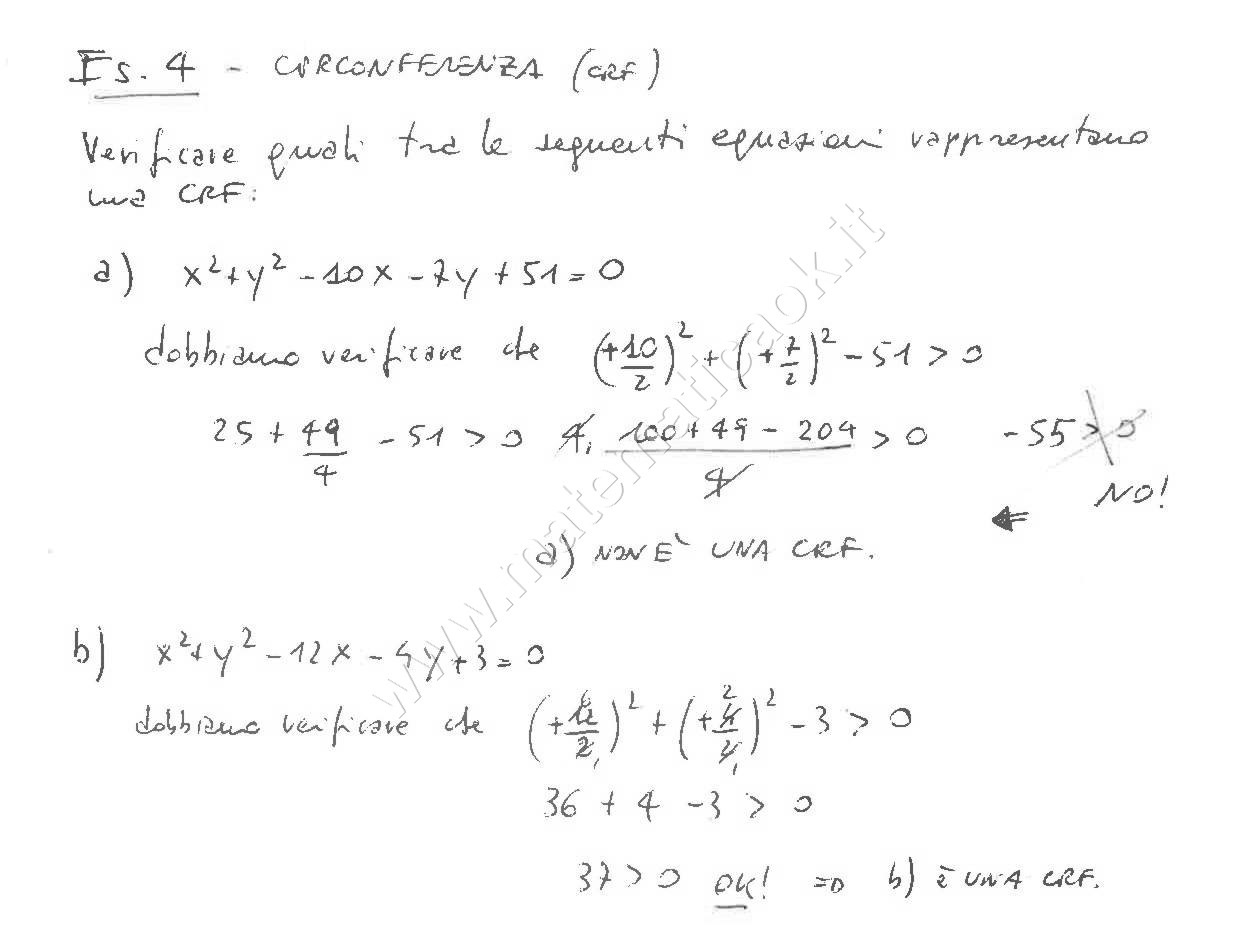 Es. 4 - CIRCONFERENZA (CRF)
Verificare quali tra le seguenti equazioni rappresentano
una CRF:
a) x²+y² -10x -7y +51=0
dobbiamo verificare che (+10/2)² + (+7/2)² -51 > 0
25 + 49/4 - 51 > 0 4. (100+49-204)/4 > 0 -55 > 0
NO!
a) NON E' UNA CRF.
b) x²+y² -12x -4y +3=0
dobbiamo verificare che (+12/2)² + (+4/2)² -3 > 0
36 + 4 -3 > 0
37 > 0 OK! => b) È UNA CRF.
www.matematicaok.it